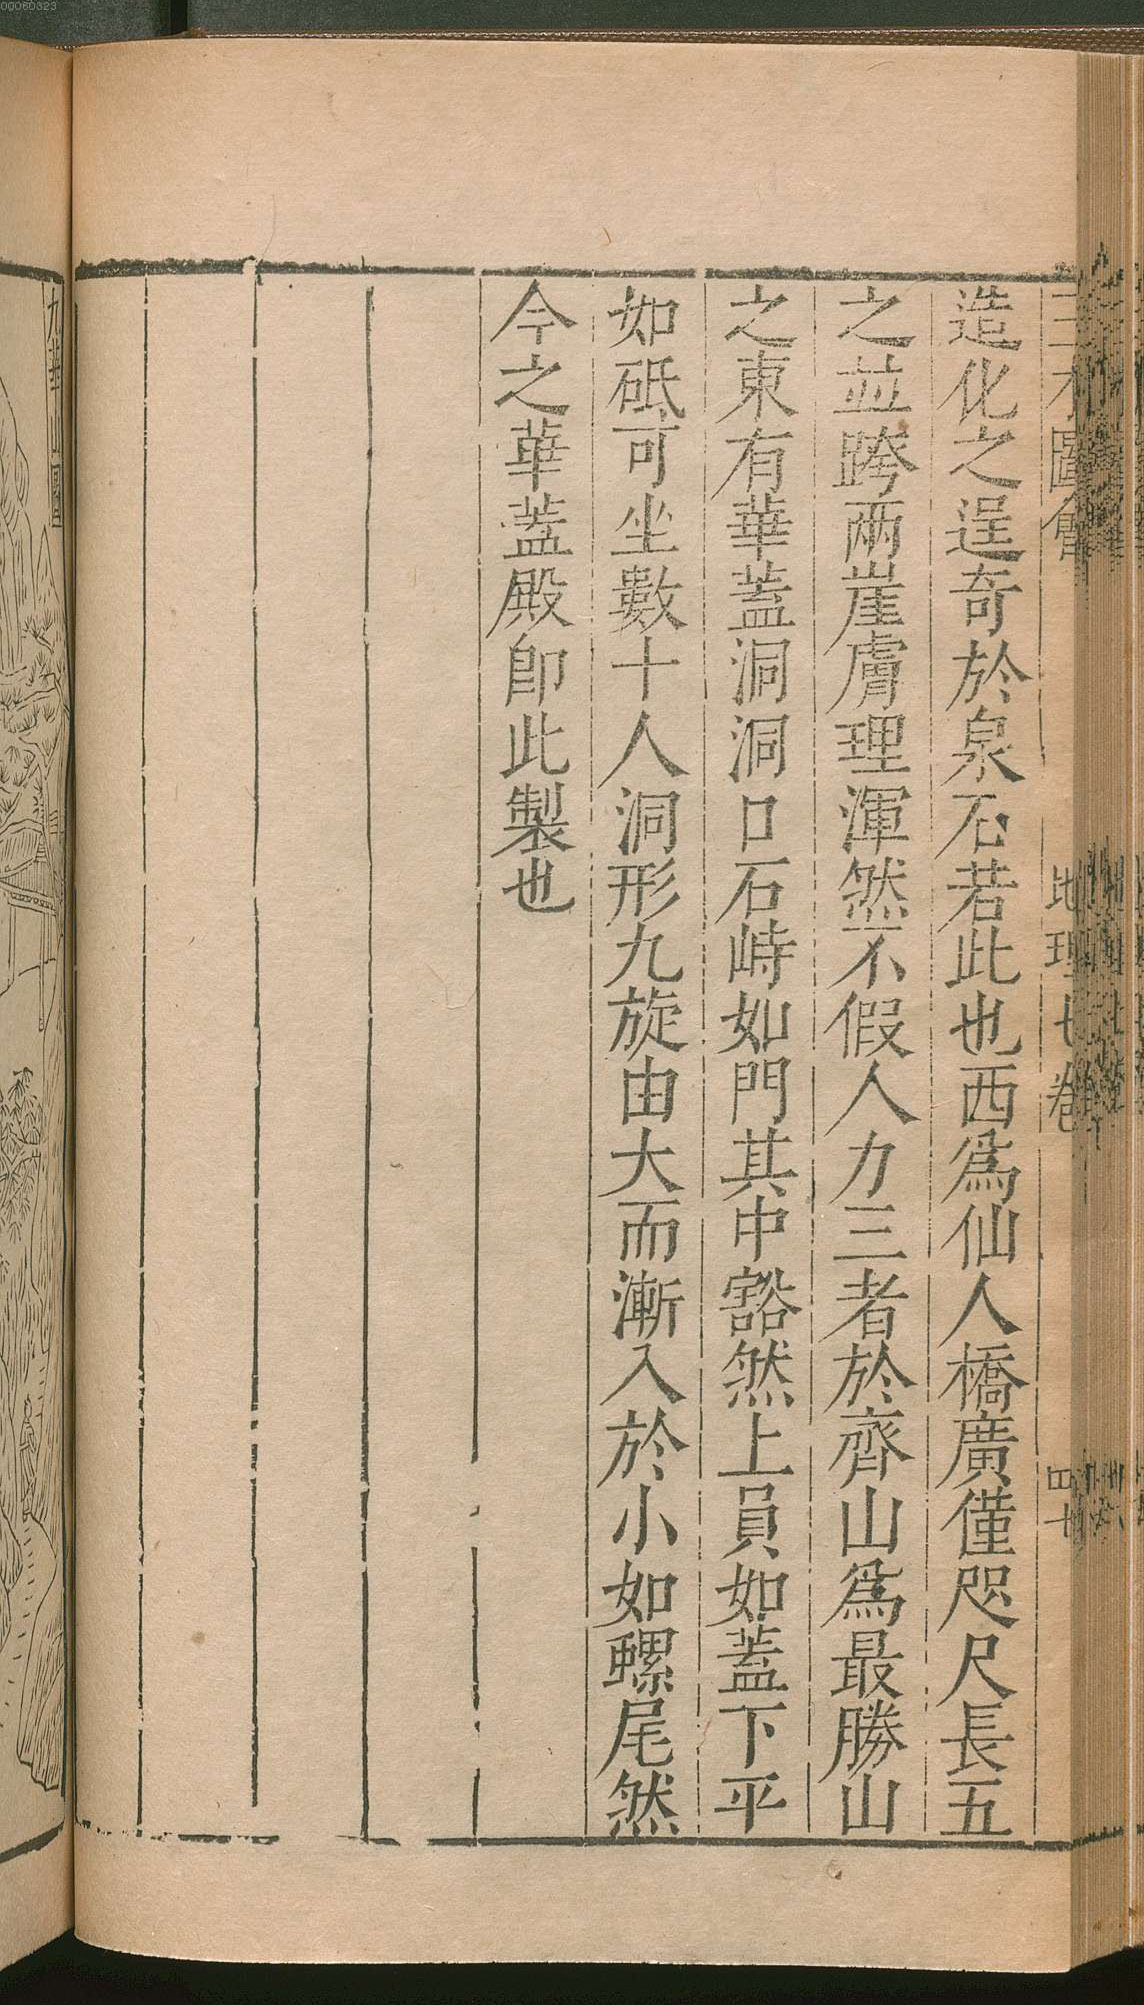 00060323
三才圖會 地理七卷 四十
造化之逞奇於泉石若此也西爲仙人橋廣僅咫尺長五
之並跨兩崖膚理渾然不假人力三者於齊山爲最勝山
之東有華蓋洞洞口石峙如門其中豁然上員如蓋下平
如砥可坐數十人洞形九旋由大而漸入於小如螺尾然
今之華蓋殿卽此製也
九華山圖